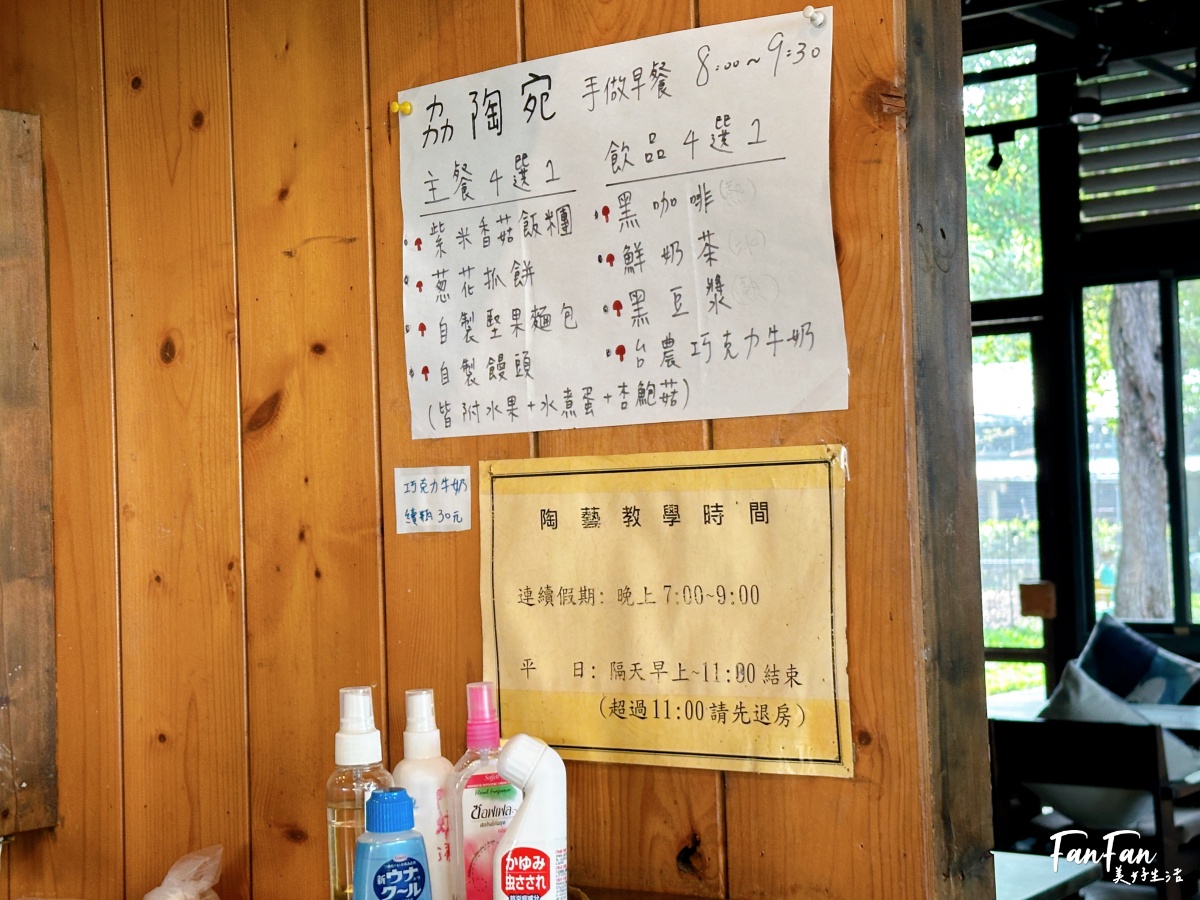 劦陶宛 手做早餐 8:00~9:30
主餐4選1
紫米香菇飯糰
蔥花抓餅
自製堅果麵包
自製饅頭
(皆附水果+水煮蛋+杏鮑菇)
飲品4選1
黑咖啡(熱)
鮮奶茶(冰)
黑豆漿(熱)
台農巧克力牛奶
巧克力牛奶
續瓶30元
陶藝教學時間
連續假期: 晚上7:00~9:00
平 日: 隔天早上~11:00結束
(超過11:00請先退房)
新ウナ
クール
かゆみ
虫さされ
FanFan
美好生活